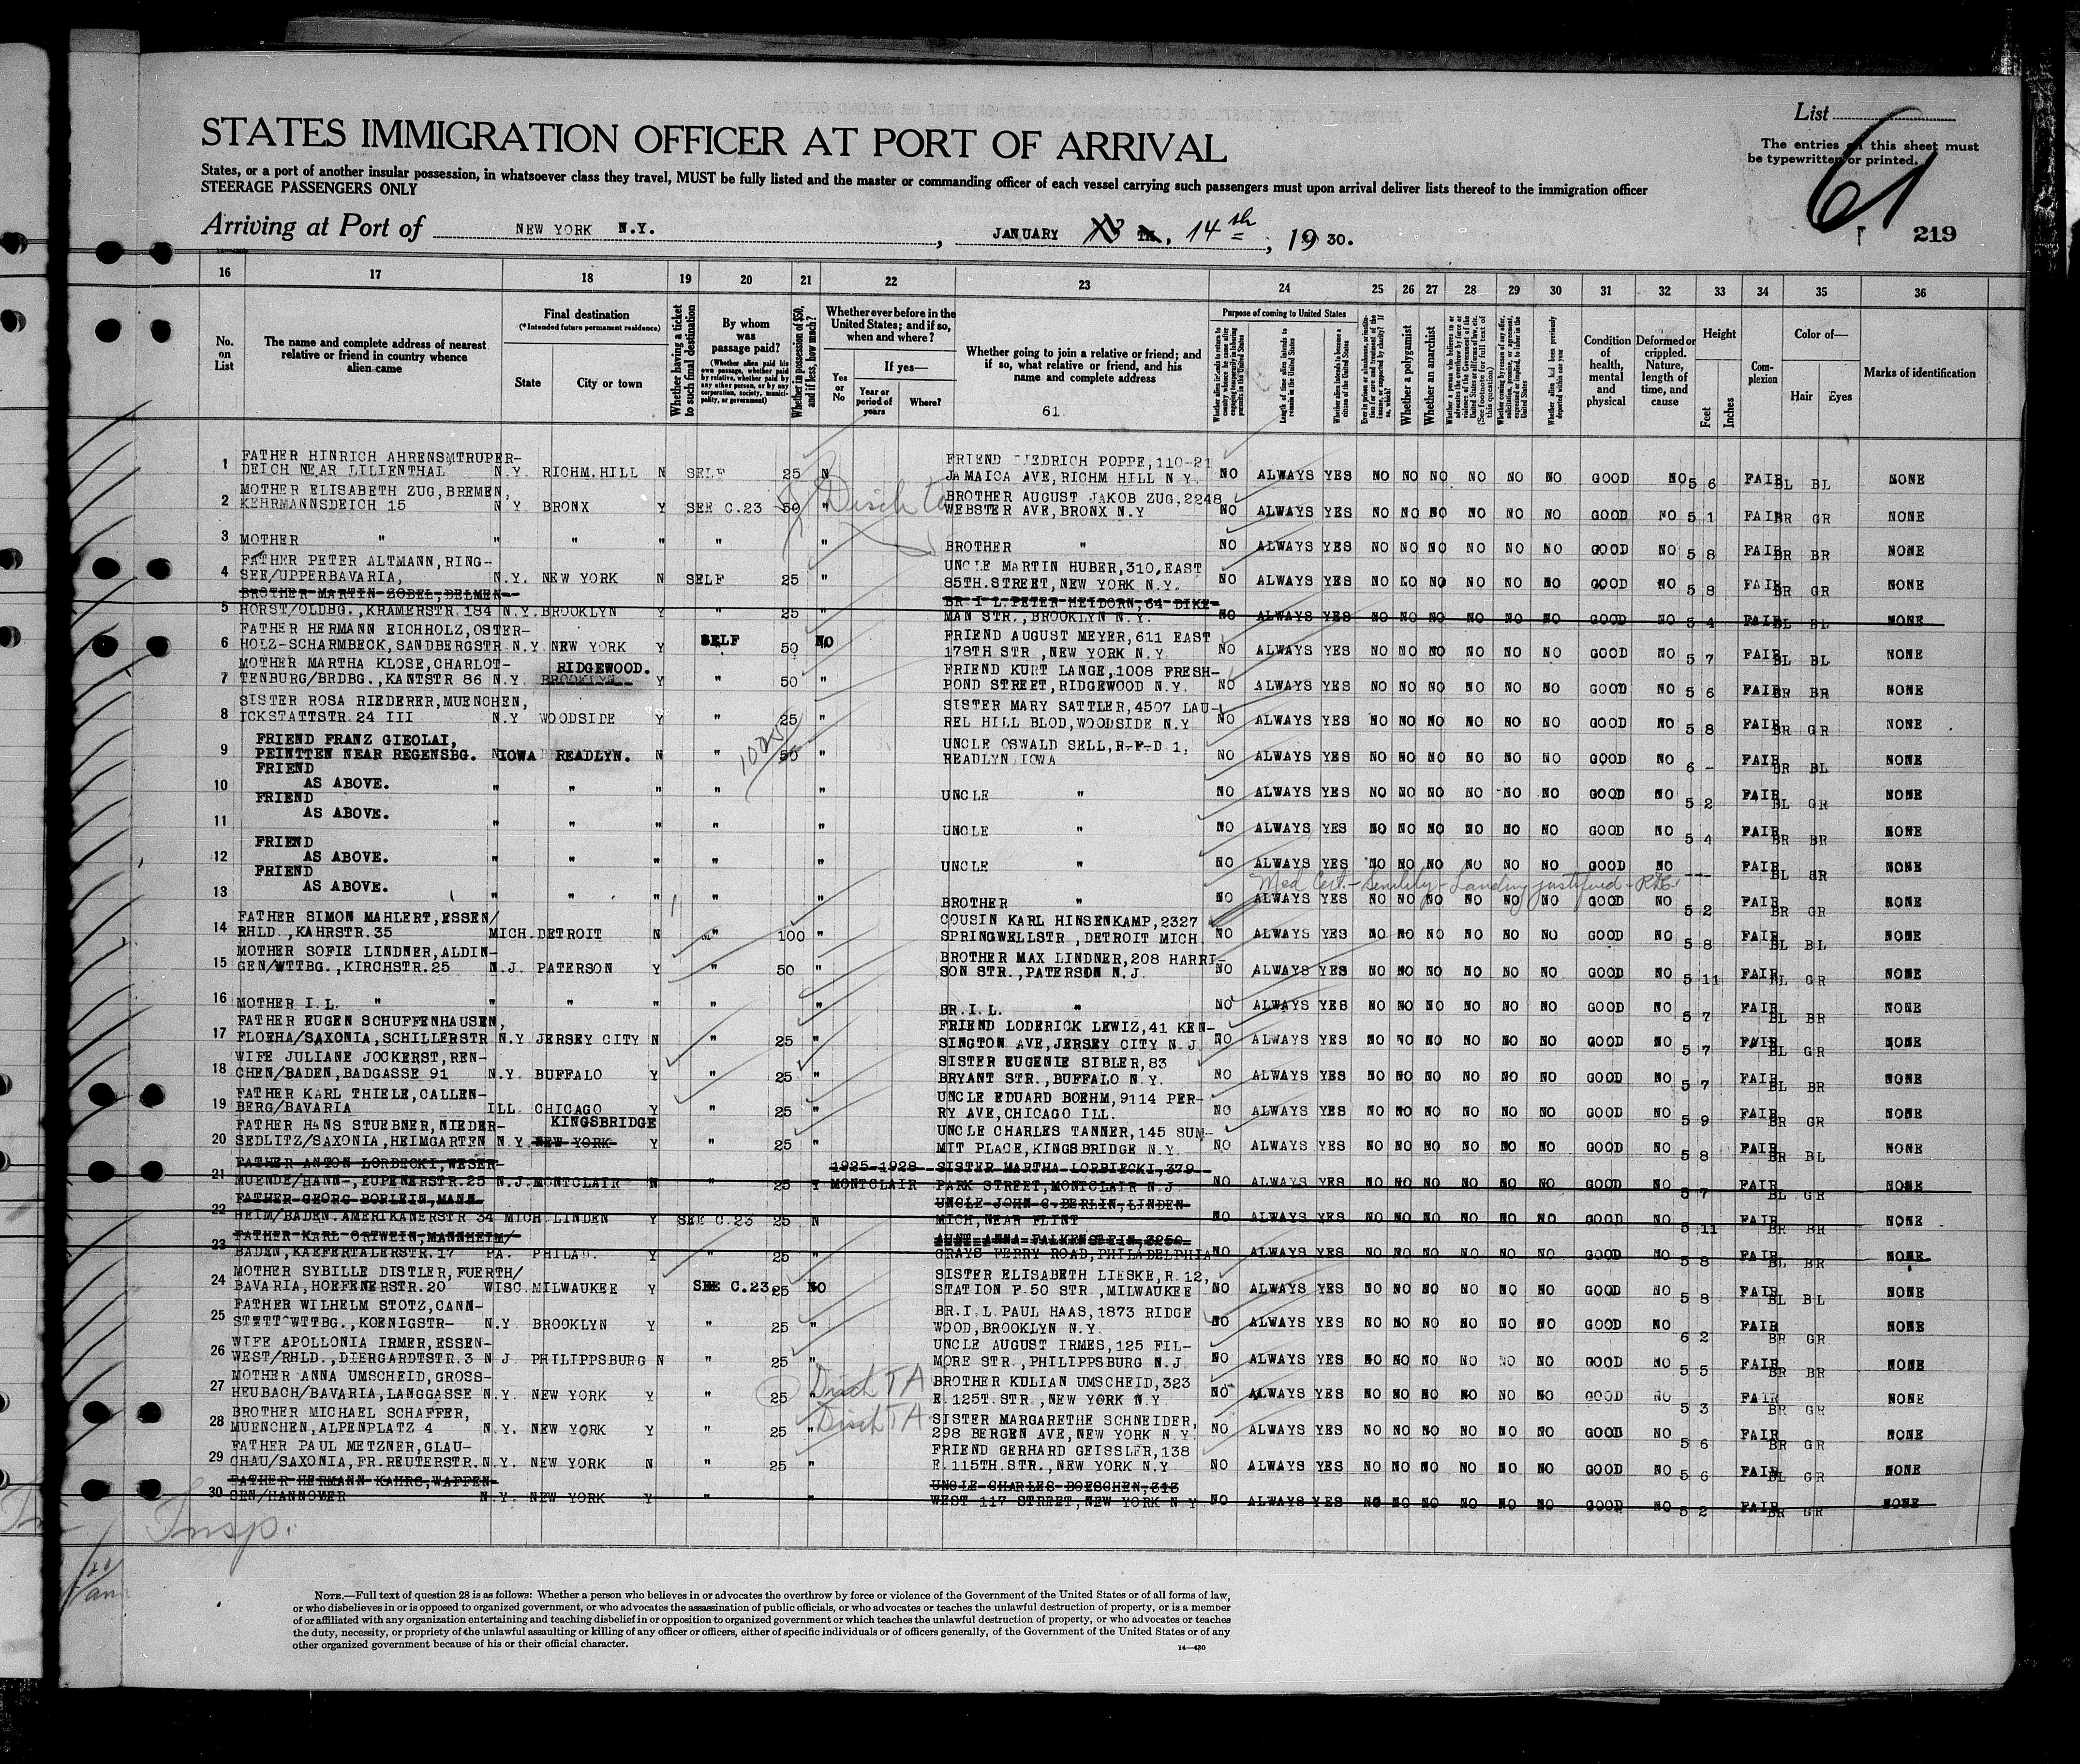 List
The entries on this sheet must
be typewritten or printed.
61
219
STATES IMMIGRATION OFFICER AT PORT OF ARRIVAL
States, or a port of another insular possession, in whatsoever class they travel, MUST be fully listed and the master or commanding officer of each vessel carrying such passengers must upon arrival deliver lists thereof to the immigration officer
STEERAGE PASSENGERS ONLY
Arriving at Port of NEW YORK N.Y., JANUARY 13 TH, 14th, 1930.
16 17 18 19 20 21 22 23 24 25 26 27 28 29 30 31 32 33 34 35 36
No. on List
The name and complete address of nearest relative or friend in country whence alien came
Final destination
(*Intended future permanent residence)
State
City or town
Whether having a ticket to such final destination
By whom was passage paid?
(Whether alien paid his own passage, whether paid by relative, whether paid by any other person, or by any corporation, society, municipality, or government)
Whether in possession of $50, and if less, how much?
Whether ever before in the United States; and if so, when and where?
Yes or No
If yes—
Year or period of years
Where?
Whether going to join a relative or friend; and if so, what relative or friend, and his name and complete address
61.
Purpose of coming to United States
Length of time alien intends to remain in the United States
Whether alien intends to become a citizen of the United States
Whether a polygamist
Whether an anarchist
Condition of health, mental and physical
Deformed or crippled. Nature, length of time, and cause
Height
Feet
Inches
Complexion
Color of—
Hair
Eyes
Marks of identification
1 FATHER HINRICH AHRENS, TRUPER- FRIEND POPPE, 110-21
DEICH NEAR LILIENTHAL N.Y. RICHM.HILL N SELF 25 N JAMAICA AVE, RICHM HILL N.Y. NO ALWAYS YES NO NO NO NO NO NO GOOD NO 5 6 FAIR BL BL NONE
2 MOTHER ELISABETH ZUG, BREMEN, BROTHER AUGUST JAKOB ZUG, 2248
KEHRMANNSDEICH 15 N Y. BRONX Y SEE C.23 50 " WEBSTER AVE, BRONX N.Y NO ALWAYS YES NO NO NO NO NO NO GOOD NO 5 1 FAIR BR GR NONE
3 MOTHER " " " " " " BROTHER " NO ALWAYS YES NO NO NO NO NO NO GOOD NO 5 8 FAIR BR BR NONE
4 FATHER PETER ALTMANN, RING- UNCLE MARTIN HUBER, 310, EAST
SEE/UPPERBAVARIA, N.Y. NEW YORK N SELF 25 " 85TH.STREET, NEW YORK N.Y. NO ALWAYS YES NO NO NO NO NO NO GOOD NO 5 8 FAIR BR GR NONE
5 BROTHER MARTIN ZOBEL, DELMEN- BR I L PETER HEIDORN, 64 DIKE-
HORST/OLDBG., KRAMERSTR.184 N.Y. BROOKLYN Y " 25 " MAN STR., BROOKLYN N.Y. NO ALWAYS YES NO NO NO NO NO NO GOOD NO 5 4 FAIR BL BL NONE
6 FATHER HERMANN EICHHOLZ, OSTER- FRIEND AUGUST MEYER, 611 EAST
HOLZ-SCHARMBECK, SANDBERGSTR N.Y NEW YORK Y SELF 50 NO 178TH STR, NEW YORK N.Y NO ALWAYS YES NO NO NO NO NO NO GOOD NO 5 7 FAIR BL BL NONE
7 MOTHER MARTHA KLOSE, CHARLOT- RIDGEWOOD. FRIEND KURT LANGE, 1008 FRESH-
TENBURG/BRDBG., KANTSTR 86 N.Y. BROOKLYN Y " 50 " POND STREET, RIDGEWOOD N.Y. NO ALWAYS YES NO NO NO NO NO NO GOOD NO 5 6 FAIR BR BR NONE
8 SISTER ROSA RIEDERER, MUENCHEN, SISTER MARY SATTLER, 4507 LAU-
ICKSTATTSTR.24 III N.Y WOODSIDE Y " 25 " REL HILL BLOD, WOODSIDE N.Y NO ALWAYS YES NO NO NO NO NO NO GOOD NO 5 8 FAIR BR GR NONE
9 FRIEND FRANZ GIEOLAI, UNCLE OSWALD SELL, R-F-D 1,
PEINTTEN NEAR REGENSBG. IOWA READLYN. N " 50 " READLYN IOWA NO ALWAYS YES NO NO NO NO NO NO GOOD NO 6 - FAIR BR BL NONE
10 FRIEND AS ABOVE. " " " " " UNCLE " NO ALWAYS YES NO NO NO NO NO NO GOOD NO 5 2 FAIR BL GR NONE
11 FRIEND AS ABOVE. " " " " " UNCLE " NO ALWAYS YES NO NO NO NO NO NO GOOD NO 5 4 FAIR BR BR NONE
12 FRIEND AS ABOVE. " " " " " UNCLE " NO ALWAYS YES NO NO NO NO NO NO GOOD NO -- FAIR BL GR NONE
Med Cert - Senility - Landing justified
13 FRIEND AS ABOVE. " " " " " BROTHER " NO ALWAYS YES NO NO NO NO NO NO GOOD NO 5 2 FAIR BR GR NONE
14 FATHER SIMON MAHLERT, ESSEN/ COUSIN KARL HINSENKAMP, 2327
RHLD., KAHRSTR.35 MICH. DETROIT N " 100 " SPRINGWELLSTR., DETROIT MICH. NO ALWAYS YES NO NO NO NO NO NO GOOD NO 5 8 FAIR BL BL NONE
15 MOTHER SOFIE LINDNER, ALDIN- BROTHER MAX LINDNER, 208 HARRI-
GEN/WTTBG., KIRCHSTR.25 N.J. PATERSON Y " 50 " SON STR., PATERSON N.J. NO ALWAYS YES NO NO NO NO NO NO GOOD NO 5 11 FAIR BL GR NONE
16 MOTHER I.L. " " " " " " BR.I.L. " NO ALWAYS YES NO NO NO NO NO NO GOOD NO 5 7 FAIR BL BR NONE
17 FATHER EUGEN SCHUFFENHAUSEN, FRIEND LODERICK LEWIZ, 41 KEN-
FLOEHA/SAXONIA, SCHILLERSTR N.Y JERSEY CITY N " 25 " SINGTON AVE, JERSEY CITY N.J NO ALWAYS YES NO NO NO NO NO NO GOOD NO 5 7 FAIR BL GR NONE
18 WIFE JULIANE JOCKERST, REN- SISTER EUGENIE SIBLER, 83
CHEN/BADEN, BADGASSE 91 N.Y. BUFFALO Y " 25 " BRYANT STR., BUFFALO N.Y. NO ALWAYS YES NO NO NO NO NO NO GOOD NO 5 7 FAIR BL BR NONE
19 FATHER KARL THIELE, CALLEN- UNCLE EDUARD BOEHM, 9114 PER-
BERG/BAVARIA ILL. CHICAGO Y " 25 " RY AVE, CHICAGO ILL. NO ALWAYS YES NO NO NO NO NO NO GOOD NO 5 9 FAIR BR GR NONE
20 FATHER HANS STUEBNER, NIEDER- KINGSBRIDGE UNCLE CHARLES TANNER, 145 SUM-
SEDLITZ/SAXONIA, HEIMGARTEN N.Y. NEW YORK Y " 25 " MIT PLACE, KINGSBRIDGE N.Y. NO ALWAYS YES NO NO NO NO NO NO GOOD NO 5 8 FAIR BR BL NONE
21 FATHER ANTON LORBECKI, WESER- 1925-1928 SISTER MARTHA LORBIECKI, 379
MUENDE/HANN-, EUPENERSTR.25 N.J. MONTCLAIR N " 25 Y MONTCLAIR PARK STREET, MONTCLAIR N.J NO ALWAYS YES NO NO NO NO NO NO GOOD NO 5 7 FAIR BL GR NONE
22 FATHER GEORG BORLEIN, MANN- UNCLE JOHN G. BERLIN, LINDEN
HEIM/BADEN. AMERIKANERSTR 34 MICH LINDEN Y SEE C.23 25 N MICH, NEAR FLINT NO ALWAYS YES NO NO NO NO NO NO GOOD NO 5 11 FAIR BR BR NONE
23 FATHER KARL ORTWEIN, MANNHEIM/ AUNT ANNA FALKENSTEIN, 3250
BADEN, KAEFERTALERSTR.17 PA. PHILAD. Y " 25 " GRAYS FERRY ROAD, PHILADELPHIA NO ALWAYS YES NO NO NO NO NO NO GOOD NO 5 8 FAIR BL BR NONE
24 MOTHER SYBILLE DISTLER, FUERTH/ SISTER ELISABETH LIESKE, R.12,
BAVARIA, HOEFENERSTR.20 WISC. MILWAUKEE Y SEE C.23 25 NO STATION F.50 STR, MILWAUKEE NO ALWAYS YES NO NO NO NO NO NO GOOD NO 5 8 FAIR BL BL NONE
25 FATHER WILHELM STOTZ, CANN- BR.I.L PAUL HAAS, 1873 RIDGE
STETT WTTBG., KOENIGSTR- N.Y. BROOKLYN Y " 25 " WOOD, BROOKLYN N.Y. NO ALWAYS YES NO NO NO NO NO NO GOOD NO 6 2 FAIR BR GR NONE
26 WIFE APOLLONIA IRMER, ESSEN- UNCLE AUGUST IRMES, 125 FIL-
WEST/RHLD., DIERGARDTSTR.3 N J. PHILIPPSBURG N " 25 " MORE STR., PHILIPPSBURG N.J. NO ALWAYS YES NO NO NO NO NO NO GOOD NO 5 5 FAIR BR BR NONE
27 MOTHER ANNA UMSCHEID, GROSS- Disch TA BROTHER KULIAN UMSCHEID, 323
HEUBACH/BAVARIA, LANGGASSE N.Y. NEW YORK Y " 25 " E.125T.STR., NEW YORK N.Y NO ALWAYS YES NO NO NO NO NO NO GOOD NO 5 3 FAIR BR GR NONE
28 BROTHER MICHAEL SCHAFFER, Disch TA SISTER MARGARETHE SCHNEIDER,
MUENCHEN, ALPENPLATZ 4 N.Y. NEW YORK Y " 25 " 298 BERGEN AVE, NEW YORK N.Y NO ALWAYS YES NO NO NO NO NO NO GOOD NO 5 6 FAIR BR GR NONE
29 FATHER PAUL METZNER, GLAU- FRIEND GERHARD GEISSLER, 138
CHAU/SAXONIA, FR.REUTERSTR. N.Y. NEW YORK N " 25 " E.115TH.STR., NEW YORK N.Y NO ALWAYS YES NO NO NO NO NO NO GOOD NO 5 6 FAIR BL GR NONE
30 FATHER HERMANN KAHRS, WAFFEN- UNCLE CHARLES BOESCHEN, 313
SEN/HANNOVER N.Y. NEW YORK Y " WEST 117 STREET, NEW YORK N Y NO ALWAYS YES NO NO NO NO NO NO GOOD NO 5 2 FAIR BR GR NONE
Insp.
NOTE.—Full text of question 28 is as follows: Whether a person who believes in or advocates the overthrow by force or violence of the Government of the United States or of all forms of law,
or who disbelieves in or is opposed to organized government, or who advocates the assassination of public officials, or who advocates or teaches the unlawful destruction of property, or is a member
of or affiliated with any organization entertaining and teaching disbelief in or opposition to organized government or which teaches the unlawful destruction of property, or who advocates or teaches
the duty, necessity, or propriety of the unlawful assaulting or killing of any officer or officers, either of specific individuals or of officers generally, of the Government of the United States or of any
other organized government because of his or their official character.
14—430